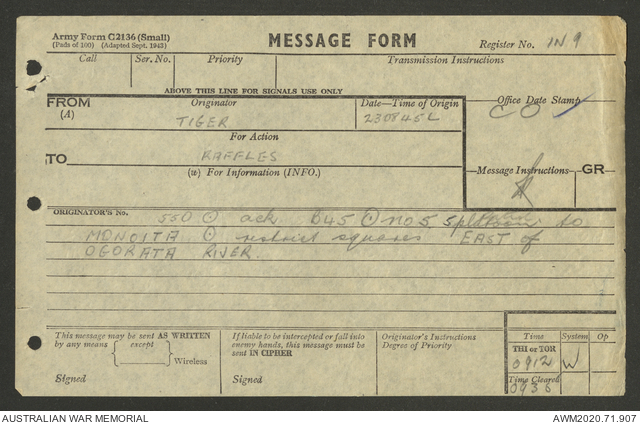 Army Form C2136 (Small)
(Pads of 100) (Adapted Sept. 1943)
MESSAGE FORM
Register No. IN 9
Call Ser. No. Priority Transmission Instructions
ABOVE THIS LINE FOR SIGNALS USE ONLY
FROM Originator Date—Time of Origin Office Date Stamp
(A) TIGER 230845L CO
For Action
TO RAFFLES
(w) For Information (INFO.) Message Instructions GR
ORIGINATOR'S No.
550 ⊙ ack B45 ⊙ no 5 to
MONOITA ⊙ restrict squares EAST of
OGORATA RIVER.
This message may be sent AS WRITTEN
by any means except
Wireless
Signed
If liable to be intercepted or fall into
enemy hands, this message must be
sent IN CIPHER
Signed
Originator's Instructions
Degree of Priority
Time System Op
THI or TOR
0912 W
Time Cleared
0938
AUSTRALIAN WAR MEMORIAL AWM2020.71.907